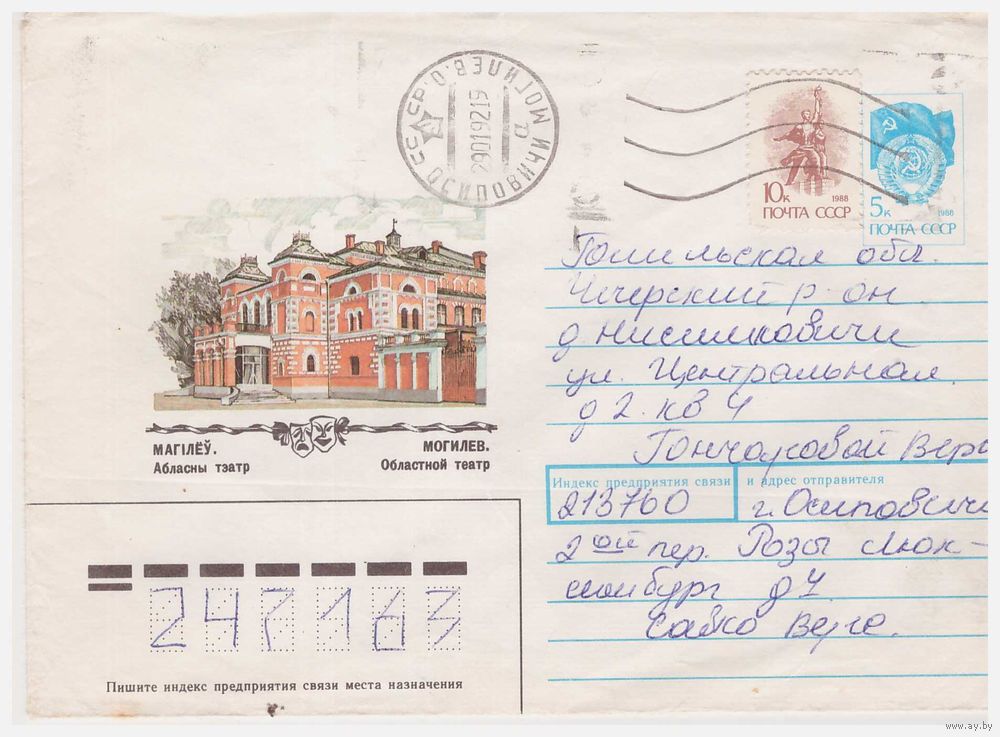 СССР
МОГИЛЕВ. О.
ОСИПОВИЧИ
29019219
10к 1988
ПОЧТА СССР
5к 1988
ПОЧТА СССР
Гомильская обл.
Чечерский р-он
д Нисимковичи
ул. Центральная
д 2. кв 4
Гончаровой Вере
МАГІЛЁЎ.
Абласны тэатр
МОГИЛЕВ.
Областной театр
Индекс предприятия связи и адрес отправителя
213760 г. Осиповичи
2 ой пер. Розы Люк-
сембург д 4.
Савко Вере.
247163
Пишите индекс предприятия связи места назначения
www.ay.by